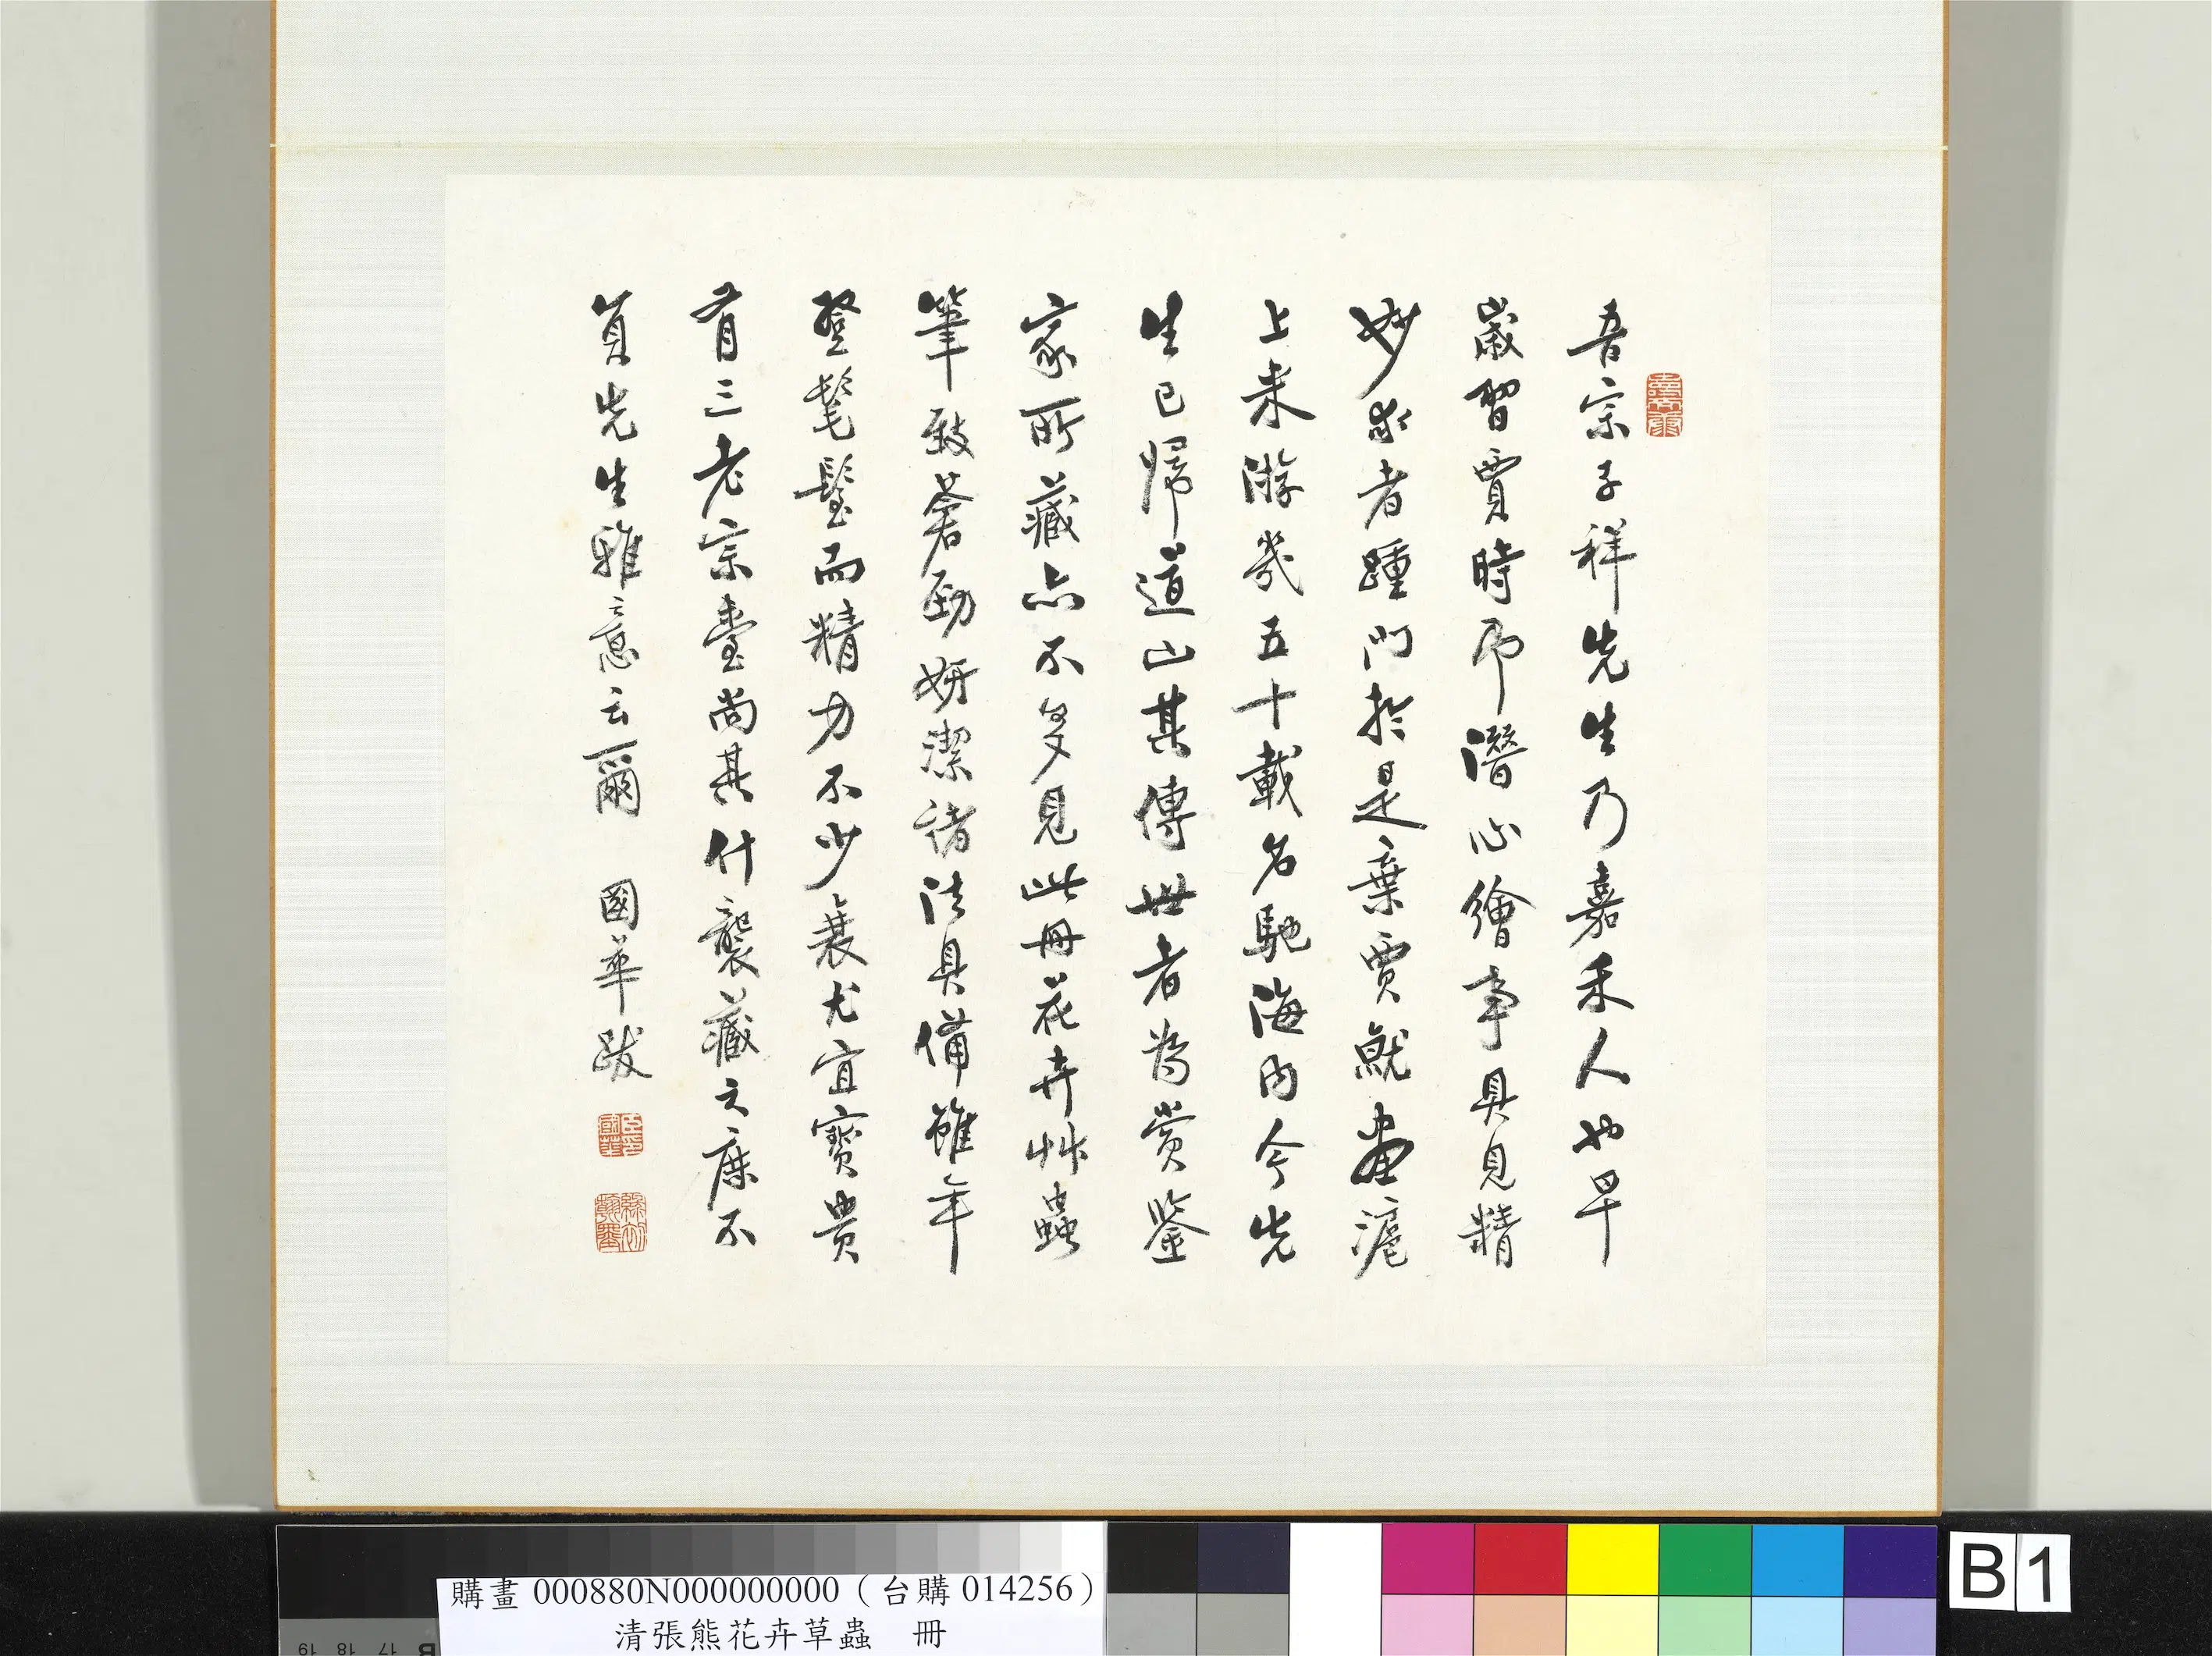 吾宗子祥先生乃嘉禾人也早
歲習賈時即潛心繪事具見精
妙求者踵門於是棄賈就畫滬
上來游幾五十載名馳海內今先
生已歸道山其傳世者為賞鑒
家所藏亦不多見此冊花卉艸蟲
筆致蒼勁妍潔諸法具備雖年
登髦而精力不少衰尤宜寶貴
有三老宗臺尚其什襲藏之庶不
負先生雅意云爾 國華跋
購畫 000880N000000000（台購 014256）
清張熊花卉草蟲 冊
B 1
19 18 17 B